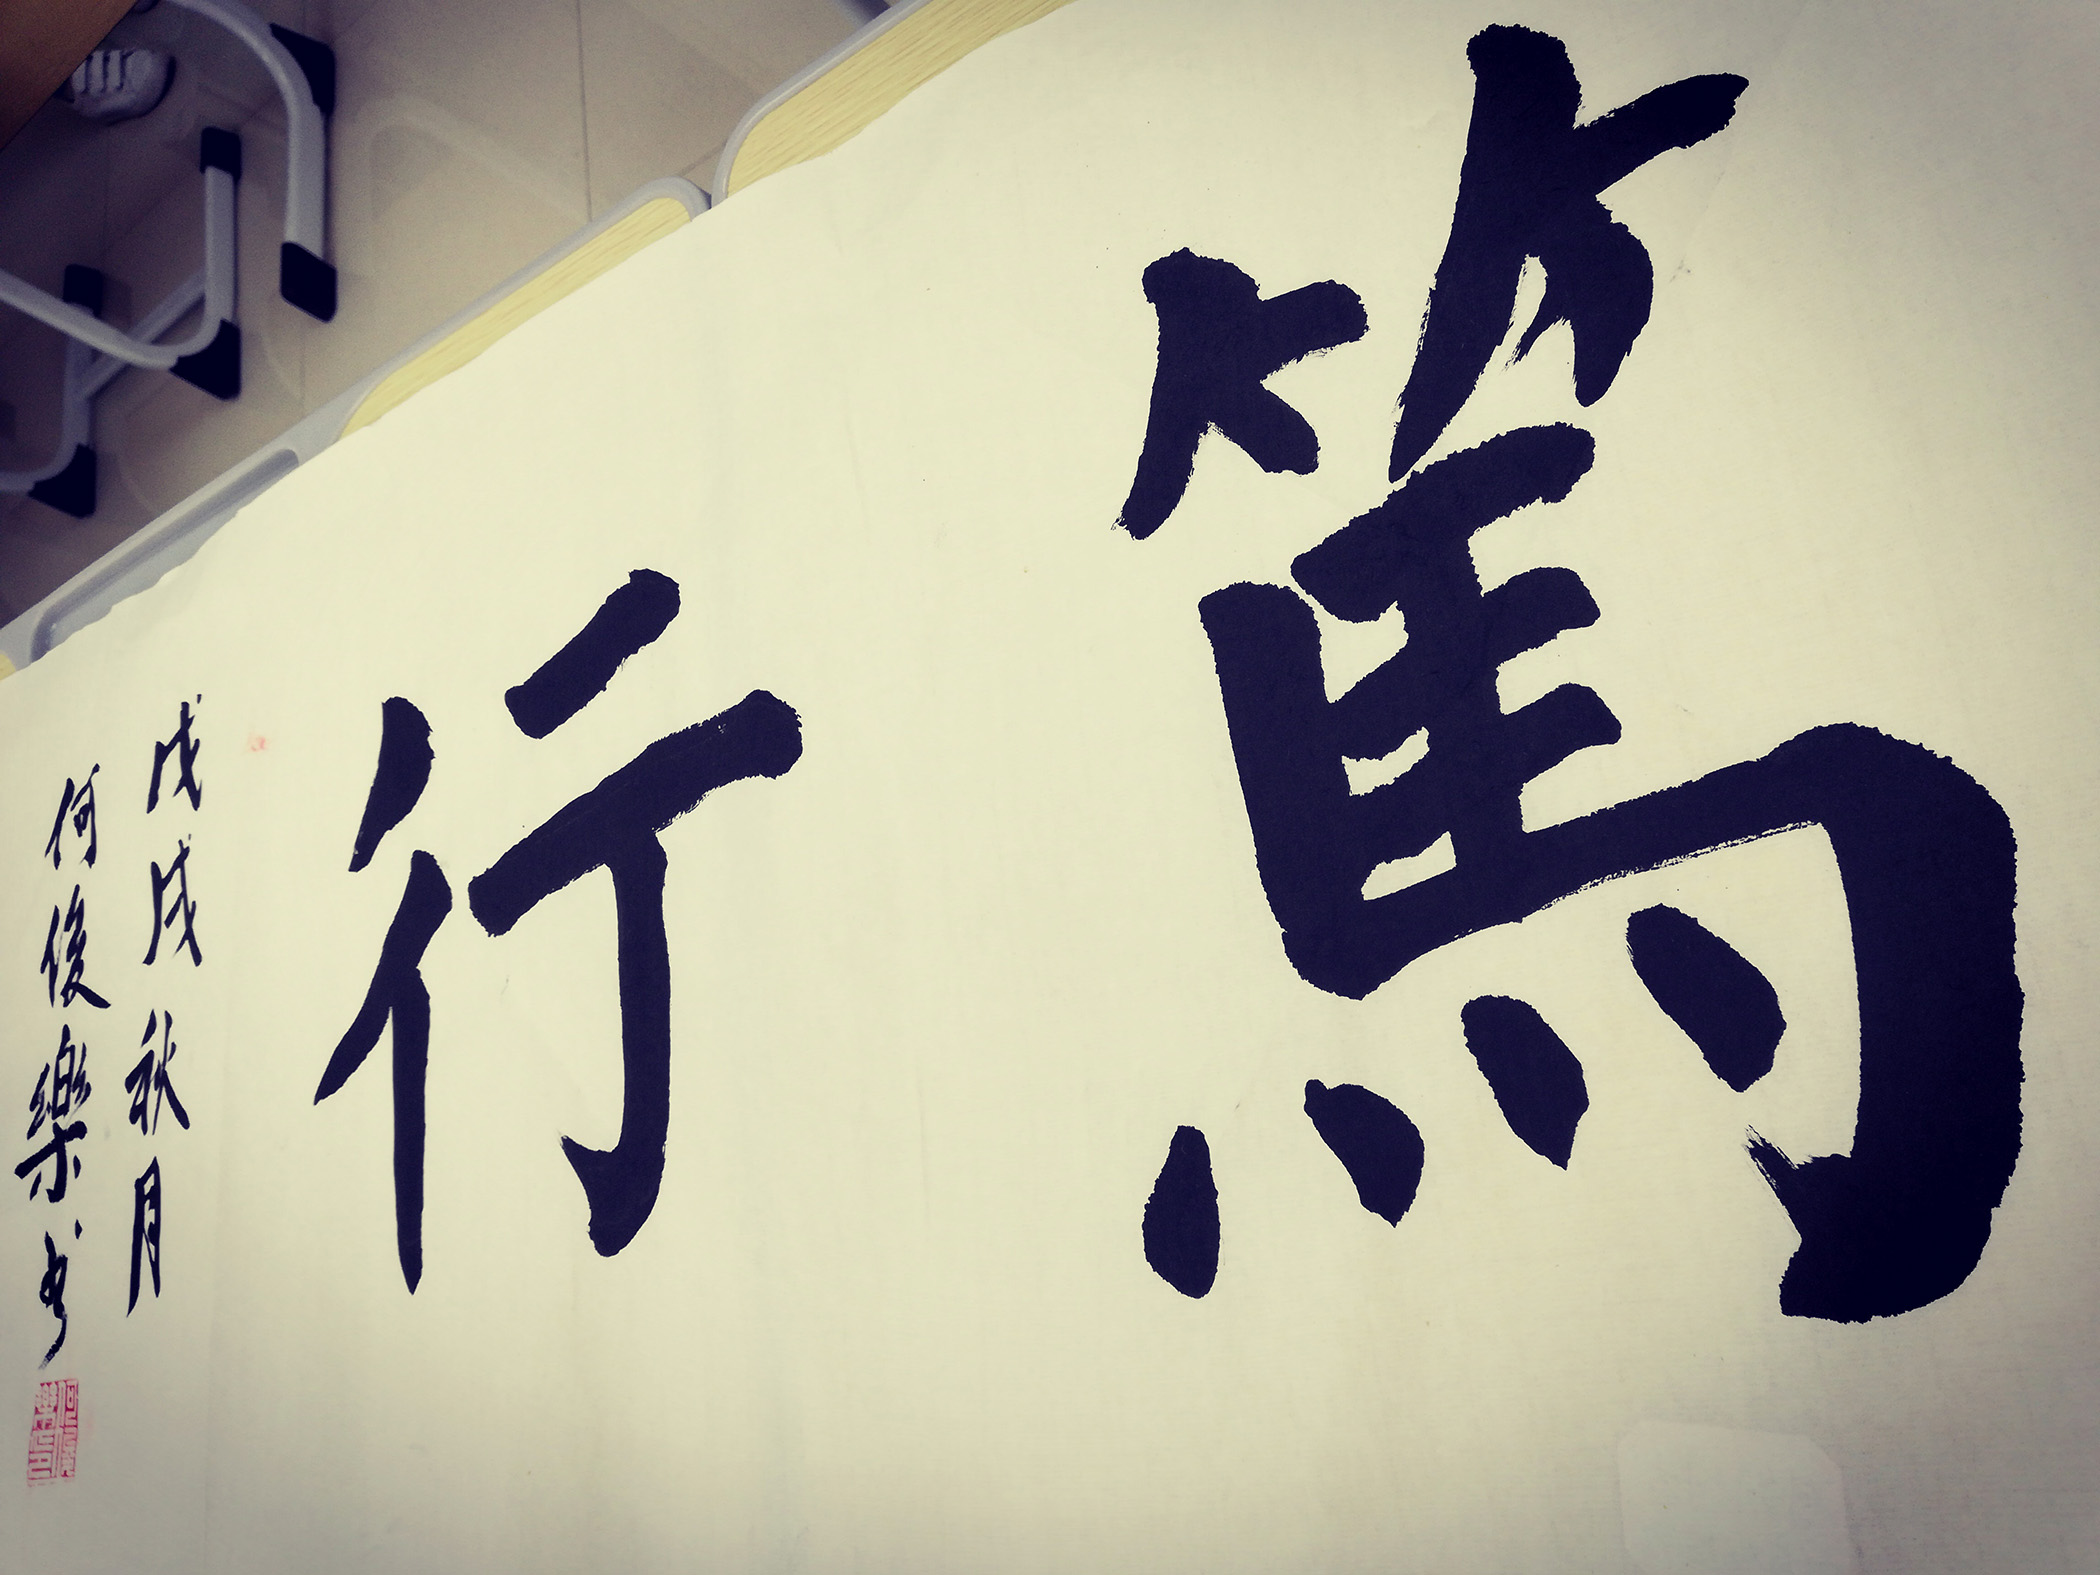 篤行
戊戌秋月
何俊樂书